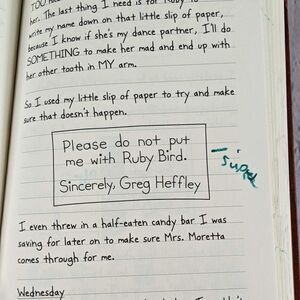 her. The last thing I need is for
write my name down on that little slip of paper,
because I know if she's my dance partner, I'll do
SOMETHING to make her mad and end up with
her other tooth in MY arm.
So I used my little slip of paper to try and make
sure that doesn't happen.
Please do not put
me with Ruby Bird.
Sincerely, Greg Heffley
I even threw in a half-eaten candy bar I was
saving for later on to make sure Mrs. Moretta
comes through for me.
Wednesday